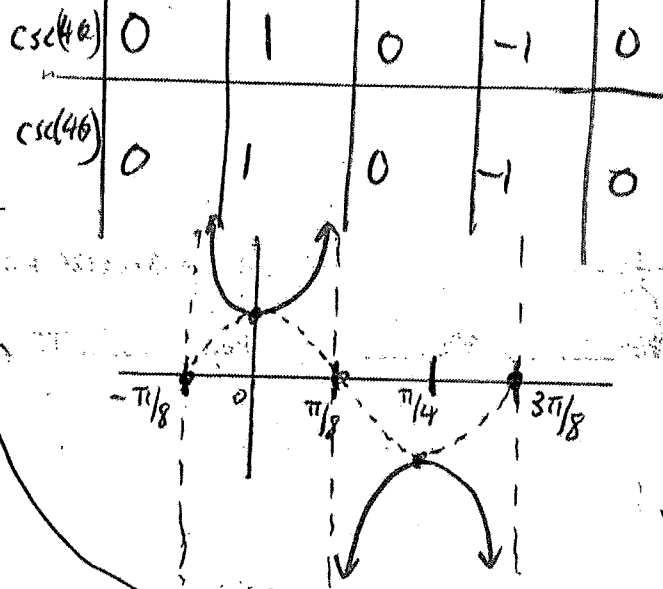 csc(4θ) 0 1 0 -1 0
csc(4θ) 0 1 0 -1 0
-π/8 0 π/8 π/4 3π/8